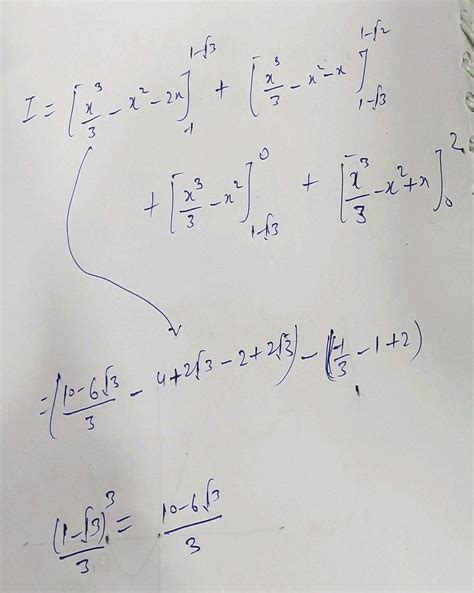 I = [x³/3 − x² − 2x]₋₁^(1−√3) + [x³/3 − x² − x]_(1−√3)^(1−√2)
+ [x³/3 − x²]_(1−√3)^0 + [x³/3 − x² + x]_0^2
= (10−6√3/3 − 4+2√3 − 2+2√3) − (−1/3 − 1+2)
(1−√3)³/3 = 10−6√3/3